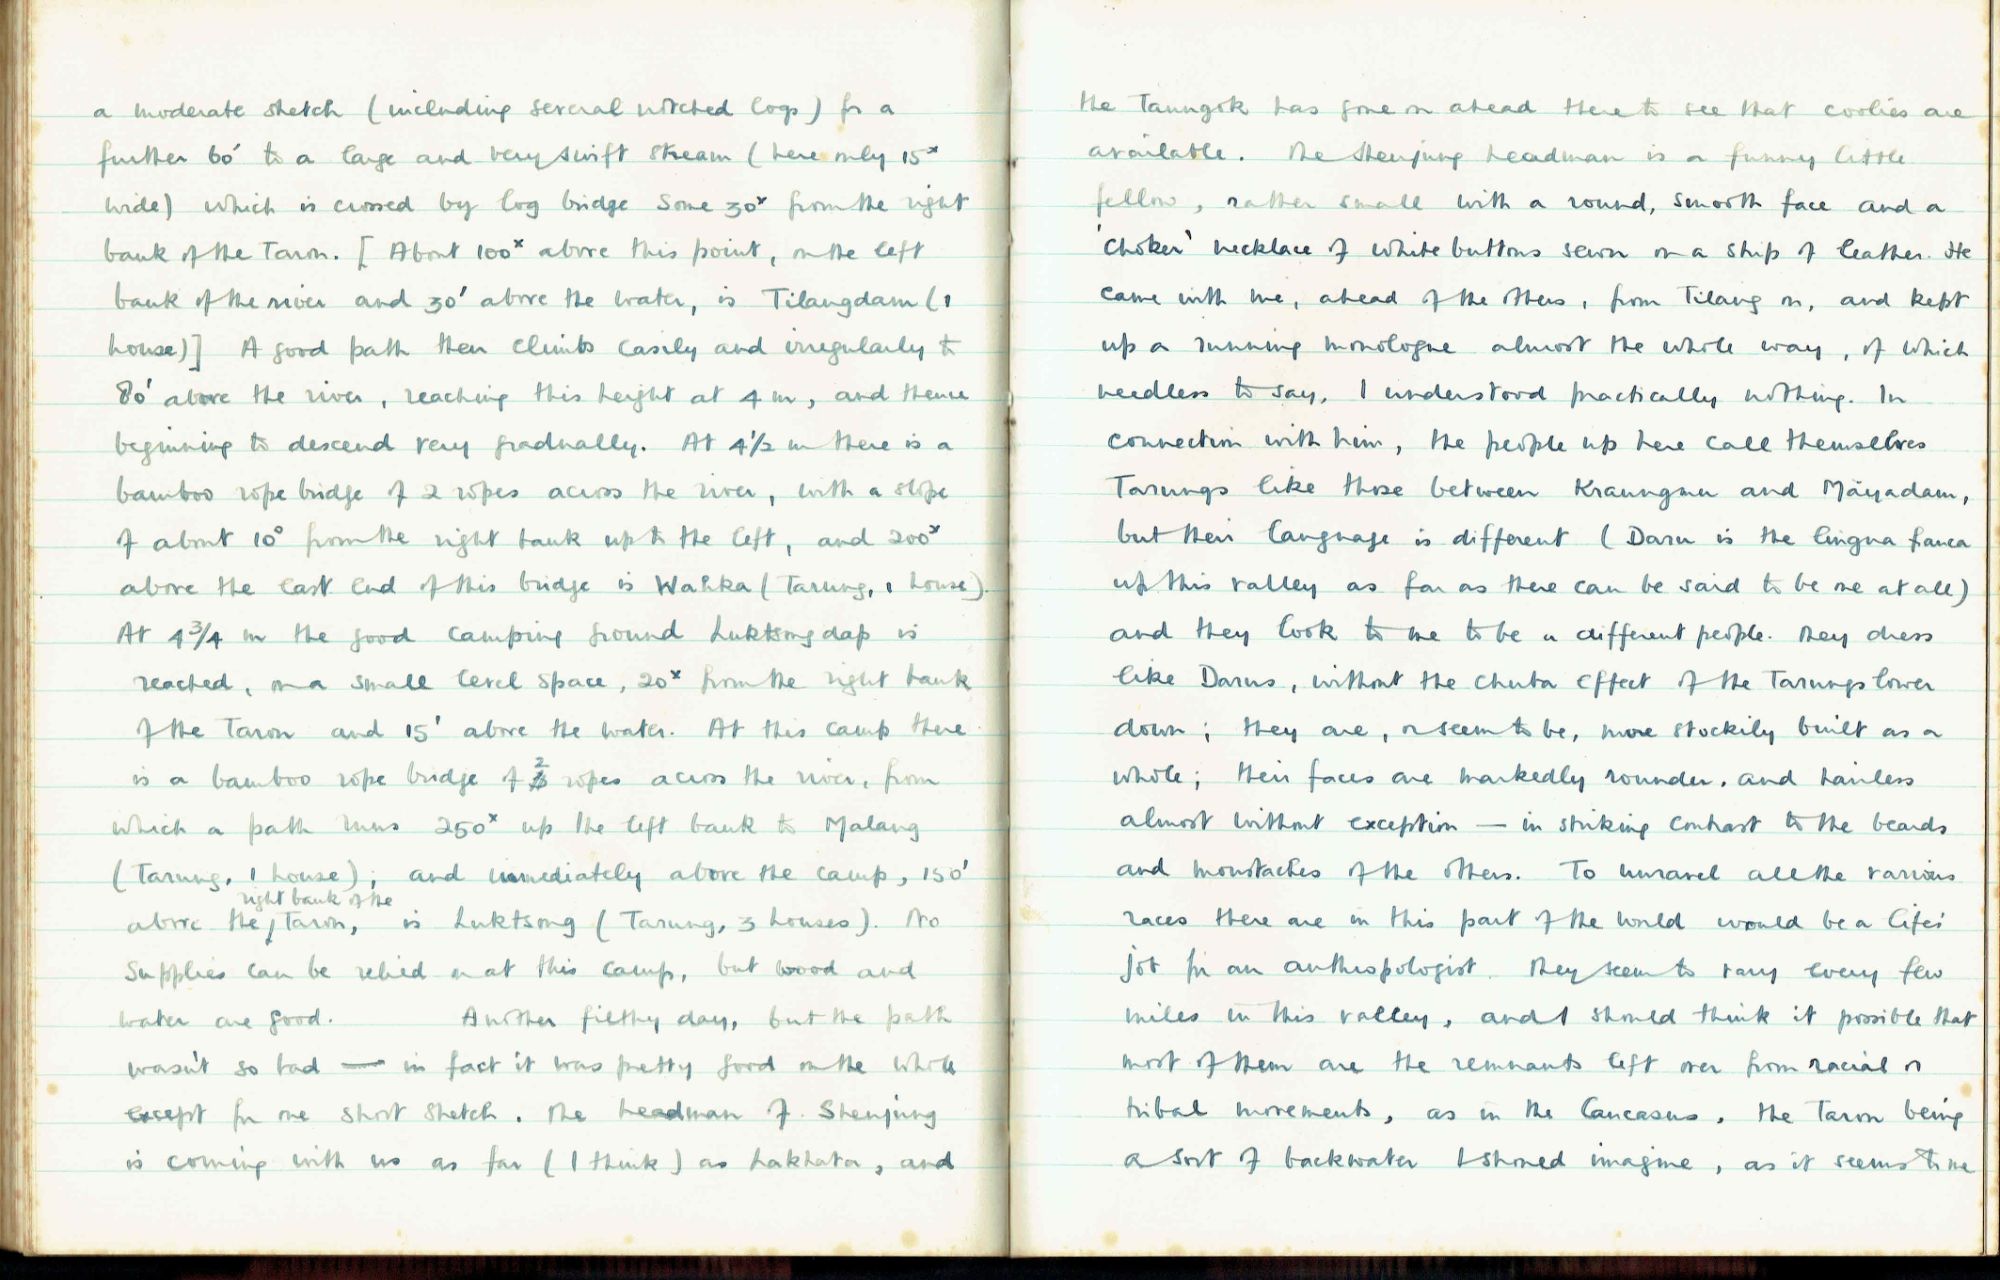 a moderate stretch (including several notched logs) for a
further 60' to a large and very swift stream (here only 15ˣ
wide) which is crossed by log bridge some 30ˣ from the right
bank of the Taron. [ About 100ˣ above this point, on the left
bank of the river and 30' above the water, is Tilangdam (1
house)] A good path then climbs easily and irregularly to
80' above the river, reaching this height at 4 m, and thence
beginning to descend very gradually. At 4½ m there is a
bamboo rope bridge of 2 ropes across the river, with a slope
of about 10° from the right bank up to the left, and 200ˣ
above the east end of this bridge is (Tarung, 1 house).
At 4¾ m the good camping ground Luktsongdap is
reached, on a small level space, 20ˣ from the right bank
of the Taron and 15' above the water. At this camp there
is a bamboo rope bridge of 2 ropes across the river, from
which a path runs 250ˣ up the left bank to Malang
(Tarung, 1 house); and immediately above the camp, 150'
above the right bank of the Taron, is Luktsong (Tarung, 3 houses). No
supplies can be relied on at this camp, but wood and
water are good. Another filthy day, but the path
wasn't so bad — in fact it was pretty good on the whole
except for one short stretch. The headman of Shenjung
is coming with us as far (I think) as Lakhata, and
the Taungok has gone on ahead there to see that coolies are
available. The Shenjung headman is a funny little
fellow, rather small with a round, smooth face and a
'choker' necklace of white buttons sewn on a strip of leather. He
came with me, ahead of the others, from Tilang on, and kept
up a running monologue almost the whole way, of which
needless to say, I understood practically nothing. In
connection with him, the people up here call themselves
Tarungs like those between Kraungmu and Māyadam,
but their language is different (Daru is the lingua franca
up this valley as far as there can be said to be one at all)
and they look to me to be a different people. They dress
like Darus, without the chuba effect of the Tarungs lower
down; they are, or seem to be, more stockily built as a
whole; their faces are markedly rounder, and hairless
almost without exception — in striking contrast to the beards
and moustaches of the others. To unravel all the various
races there are in this part of the world would be a life's
job for an anthropologist. They seem to vary every few
miles in this valley, and I should think it possible that
most of them are the remnants left over from racial or
tribal movements, as in the Caucasus, the Taron being
a sort of backwater I should imagine, as it seems to me